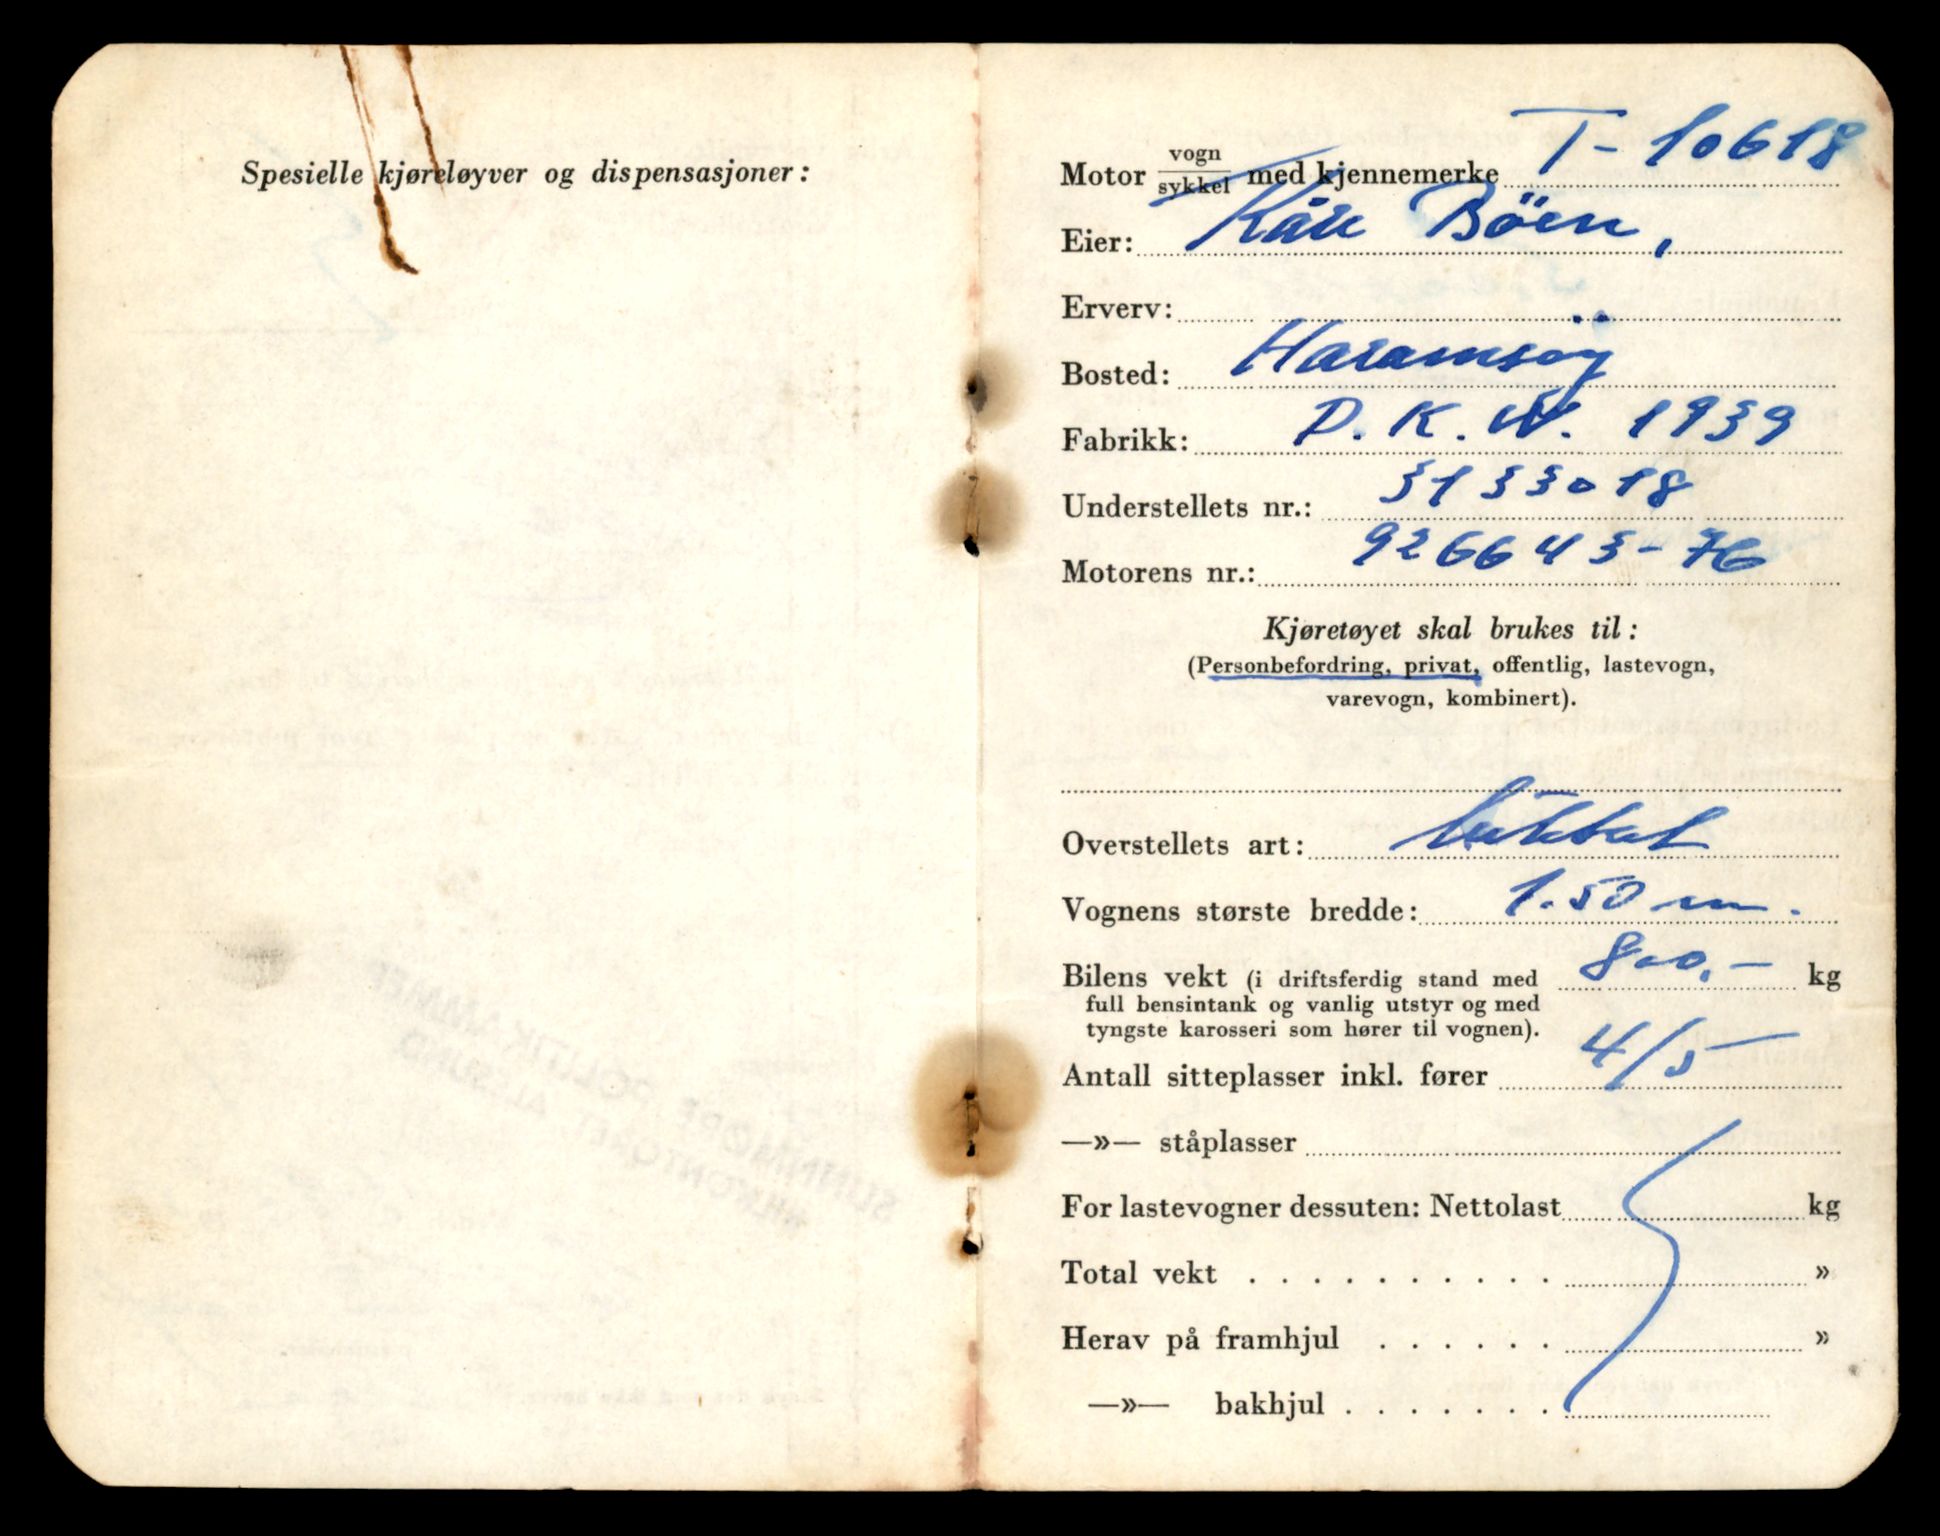 Spesielle kjøreløyver og dispensasjoner:
Motor vogn/sykkel med kjennemerke T-10618
Eier: Kåre Böen,
Erverv:
Bosted: Haramsöy
Fabrikk: D.K.W. 1939
Understellets nr.: 3133018
Motorens nr.: 926643-76
Kjøretøyet skal brukes til:
(Personbefordring, privat, offentlig, lastevogn,
varevogn, kombinert).
Overstellets art: lukket
Vognens største bredde: 1.50 m.
Bilens vekt (i driftsferdig stand med 800,- kg
full bensintank og vanlig utstyr og med
tyngste karosseri som hører til vognen).
Antall sitteplasser inkl. fører 4/5
—»— ståplasser
For lastevogner dessuten: Nettolast kg
Total vekt . . . . . . . . . . »
Herav på framhjul . . . . . . »
—»— bakhjul . . . . . . .
SUNNMØRE POLITIKAMMER
BILKONTORET ÅLESUND